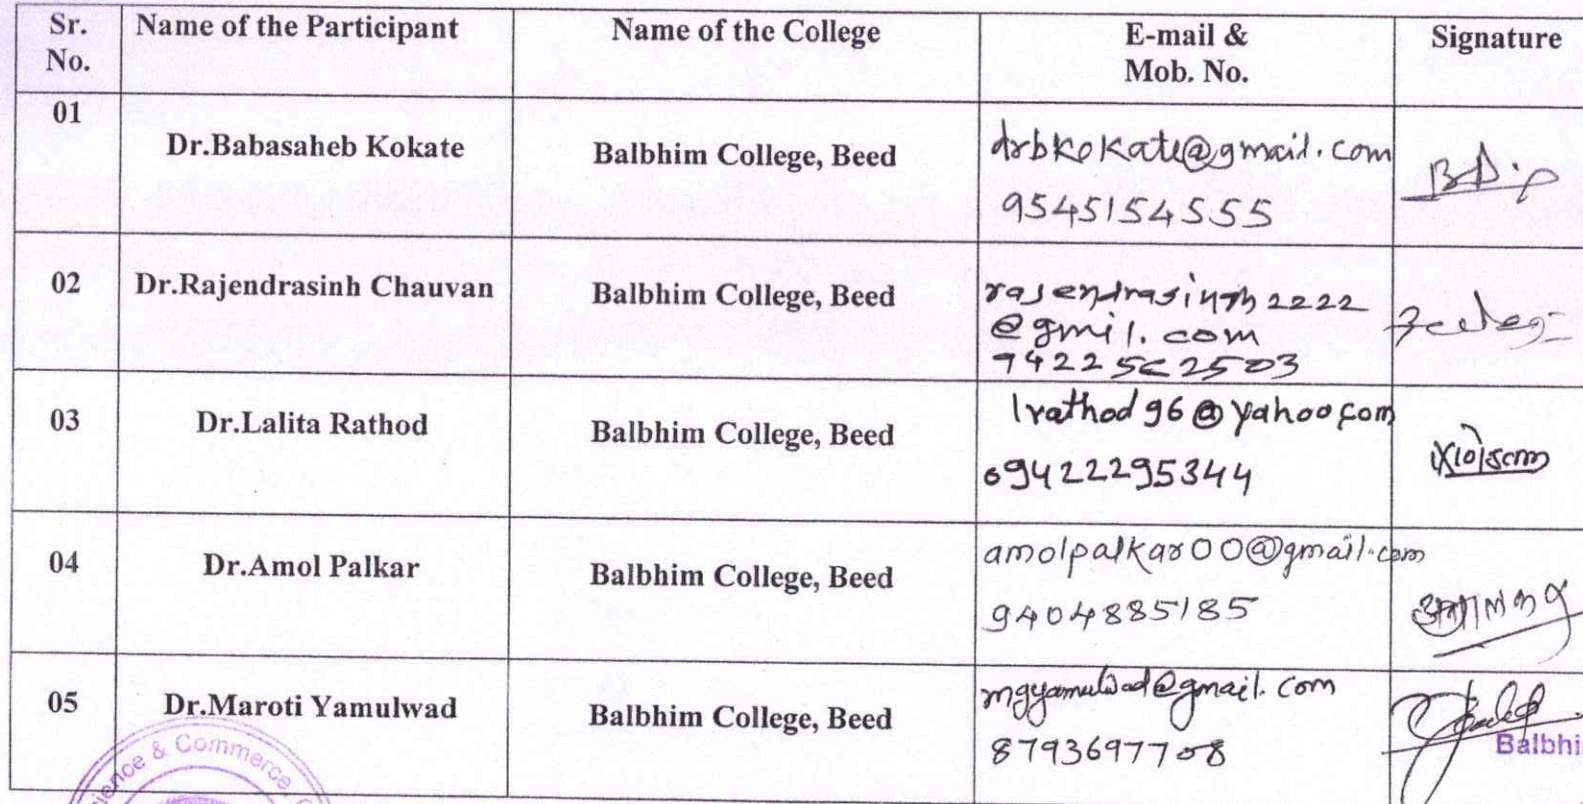 Sr. No. Name of the Participant Name of the College E-mail & Mob. No. Signature
01 Dr.Babasaheb Kokate Balbhim College, Beed drbkokate@gmail.com
9545154555
02 Dr.Rajendrasinh Chauvan Balbhim College, Beed rajendrasinh2222
@gmil.com
03 Dr.Lalita Rathod Balbhim College, Beed lrathod96@yahoo.com
09422295344
04 Dr.Amol Palkar Balbhim College, Beed amolpalkar00@gmail.com
9404885185
05 Dr.Maroti Yamulwad Balbhim College, Beed mgyamulwad@gmail.com
8793697708
Balbhi
ience & Commerce